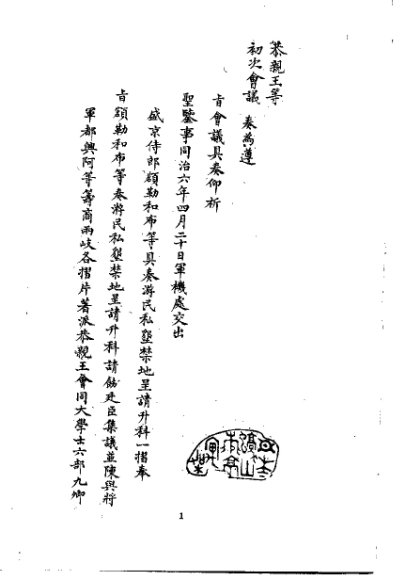 恭親王等
初次會議 奏為遵
旨會議具奏仰祈
聖鑒事同治六年四月二十日軍機處交出
盛京侍郎額勒和布等具奏游民私墾禁地呈請升科一摺奉
旨額勒和布等奏游民私墾禁地呈請升科請飭廷臣集議並陳與將
軍都興阿等籌商兩歧各摺片著派恭親王會同大學士六部九卿
1